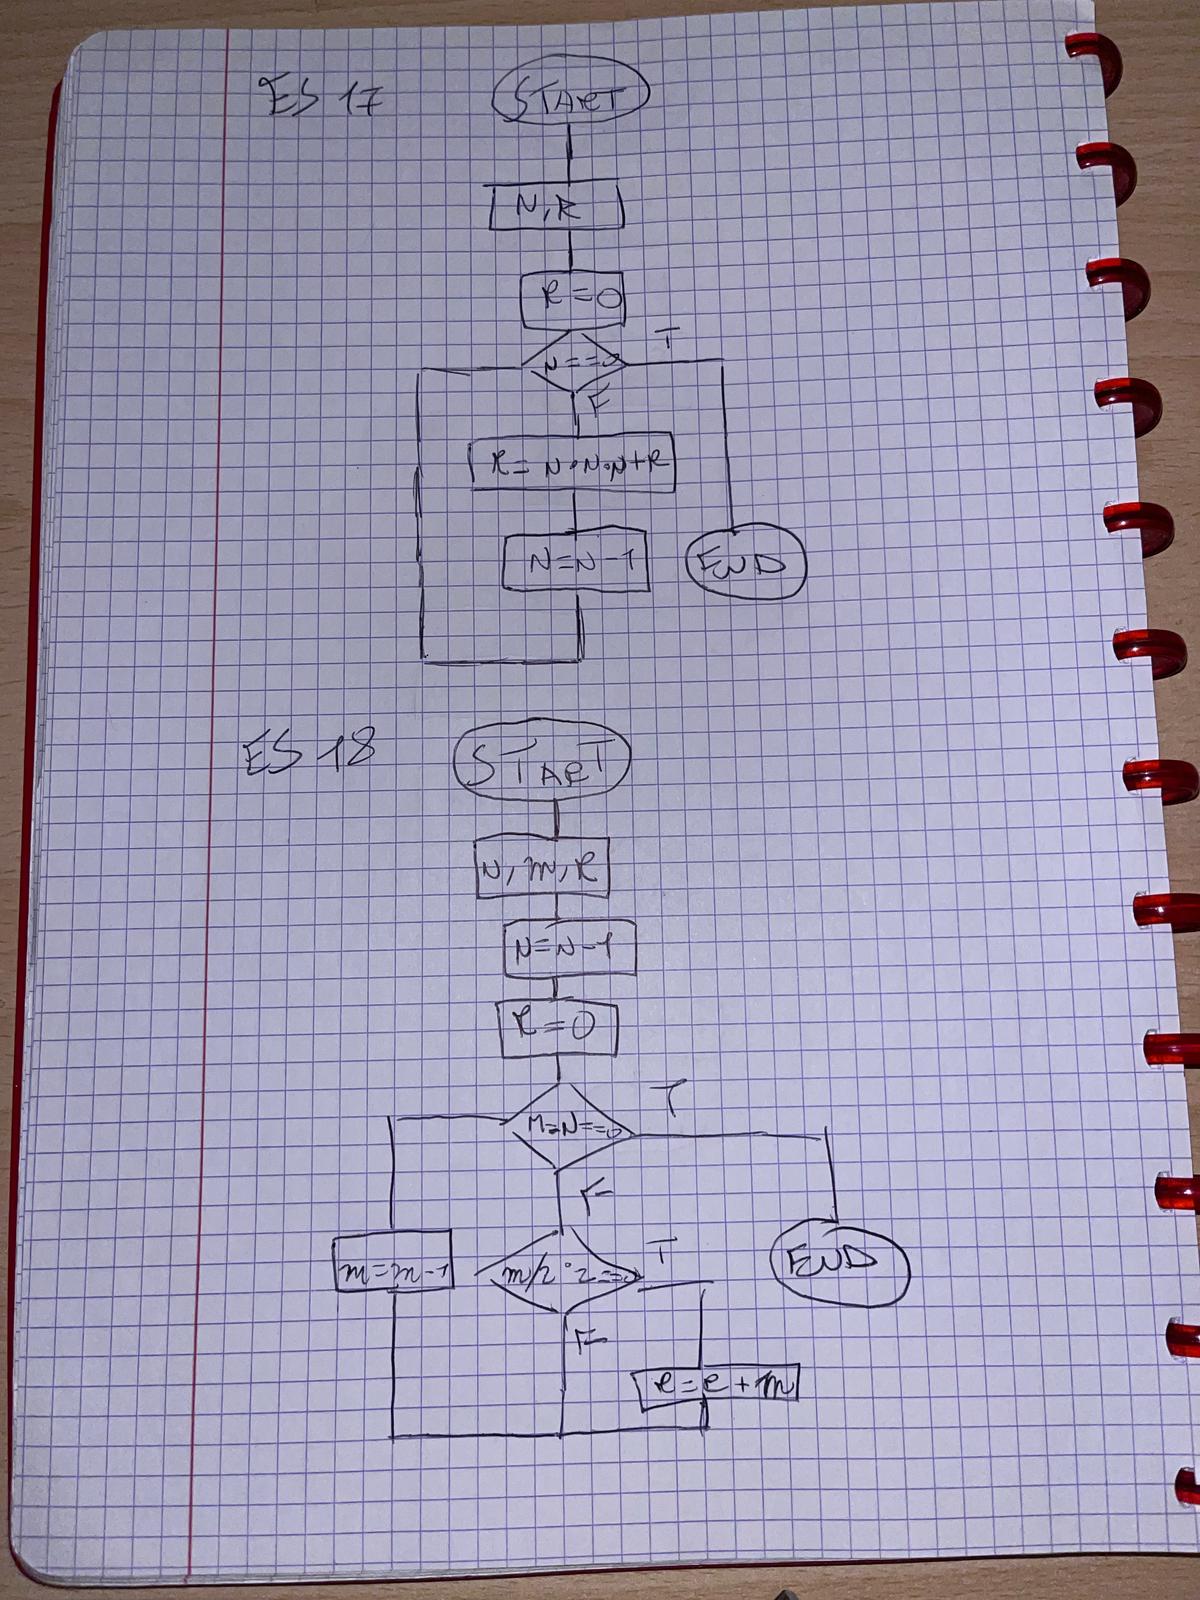 ES 17
START
N,R
R=0
N==0
T
F
R=N·N·N+R
N=N-1
END
ES 18
START
N,M,R
N=N-1
R=0
M=N==0
T
F
M=M-1
T
END
F
R=R+M